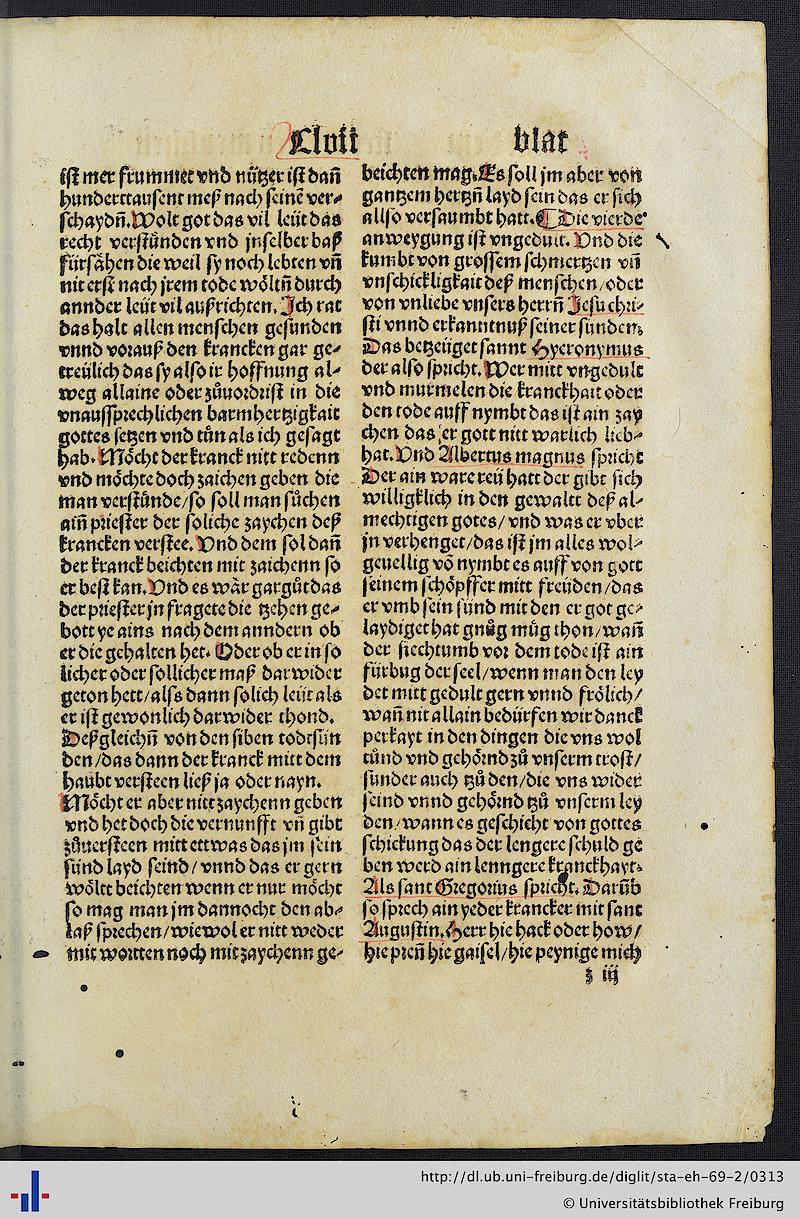 Clvii blat
ist mer frummet vnd nützer ist dañ
hunderttausent meß nach seinẽ ver⸗
schaydñ. Wolt got das vil leüt das
recht verstünden vnd jnselber baß
fürsåhen die weil sy noch lebten vñ
nit erst nach jrem tode wöltñ durch
annder leüt vil außrichten. Ich rat
das halt allen menschen gesunden
vnnd vorauß den krancken gar ge⸗
treülich das sy also ir hoffnung al⸗
weg allaine oder zůuordrist in die
vnaussprechlichen barmhertzigkait
gottes setzen vnd tůn als ich gesagt
hab. Möcht der kranck nitt redenn
vnd möchte doch zaichen geben die
man verstünde/so soll man sůchen
aiñ priester der soliche zaychen deß
krancken verstee. Vnd dem sol dañ
der kranck beichten mit zaichenn so
er best kan. Vnd es wår gar gůt das
der priester jn fragete die tzehen ge⸗
bott ye ains nach dem anndern ob
er die gehalten het. Oder ob er in so
licher oder sollicher maß dar wider
geton hett/alls dann solich leüt als
er ist gewonlich dar wider thond.
Deßgleichñ von den siben todtsün
den/das dann der kranck mitt dem
haubt versteen ließ ja oder nayn.
Möcht er aber nitt zaychenn geben
vnd het doch die vernunfft vñ gibt
zůuersteen mitt ettwas das jm sein
sünd layd seind/vnnd das er gern
wöltt beichten wenn er nur möcht
so mag man jm dannocht den ab⸗
laß sprechen/wiewol er nitt weder
mit wortten noch mit zaychenn ge⸗
beichten mag. Es soll jm aber von
gantzem hertzñ layd sein das er sich
allso versaumbt hatt. ¶ Die vierde
anweygung ist vngedult. Vnd die
kumbt von grossem schmertzen vñ
vnschickligkait deß menschen/oder
von vnliebe vnsers herrñ Jesu chri⸗
sti vnnd erkanntnuß seiner sünden.
Das betzeüget sannt Hyeronymus
der also spricht. Wer mitt vngedult
vnd murmelen die kranckhait oder
den tode auff nymbt das ist ain zay
chen das er gott nitt warlich lieb⸗
hat. Vnd Albertus magnus spricht
Der ain ware reü hatt der gibt sich
willigklich in den gewaltt deß al⸗
mechtigen gotes/vnd was er vber
jn verhenget/das ist jm alles wol⸗
geuellig vö nymbt es auff von gott
seinem schöpffer mitt freüden/das
er vmb sein sünd mit den er got ge⸗
laydiget hat gnůg můg thon/wañ
der siechtumb vor dem tode ist ain
fürbug der seel/wenn man den ley
det mitt gedult gern vnnd frölich/
wañ nit allain bedürfen wir danck
perkayt in den dingen die vns wol
tůnd vnd gehörnd zů vnserm trost/
sunder auch tzů den/die vns wider
seind vnnd gehörnd tzů vnserm ley
den/wann es geschicht von gottes
schickung das der lengere schuld ge
ben werd ain lenngere kranckhayt.
Als sant Gregorius spricht. Darũb
so sprech ain yeder krancker mit sant
Augustin. Herr hie hack oder how/
hie preñ hie gaisel/hie peynige mich
z iij
http://dl.ub.uni-freiburg.de/diglit/sta-eh-69-2/0313
© Universitätsbibliothek Freiburg